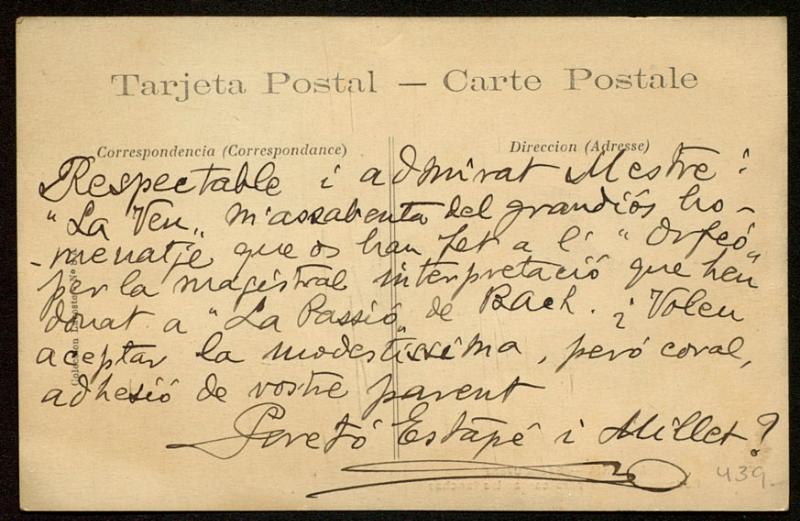 Tarjeta Postal — Carte Postale
Correspondencia (Correspondance)
Direccion (Adresse)
Respectable i admirat Mestre:
"La Veu" m'assabenta del grandiós ho-
-menatje que os han fet a l' "Orfeó"
per la magistral interpretació que heu
donat a "La Passió" de Bach. ¿Voleu
aceptar la modestissima, peró coral,
adhesió de vostre parent
Loretó Estapé i Millet?
439